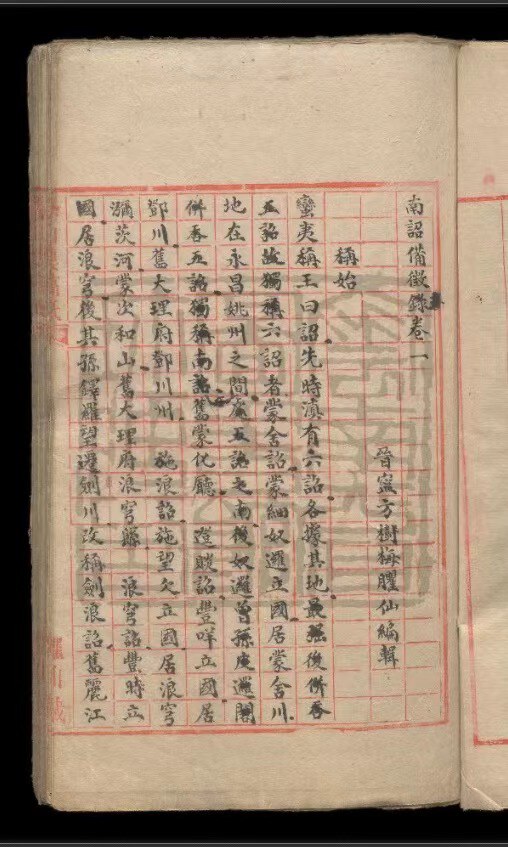 南詔備徵錄卷一
晉寧方樹梅臞仙編輯
稱始
蠻夷稱王曰詔先時滇有六詔各據其地最強後併吞
五詔故獨稱六詔者蒙舍詔蒙細奴邏立國居蒙舍川
地在永昌姚州之間處五詔之南後奴邏曾孫皮邏閣
併吞五詔獨稱南詔舊蒙化廳 邆賧詔豐咩立國居
鄧川舊大理府鄧川州 施浪詔施望欠立國居浪穹
瀰茨河蒙次和山舊大理府浪穹縣 浪穹詔豐時立
國居浪穹後其孫鐸羅望遷劍川改稱劍浪詔舊麗江